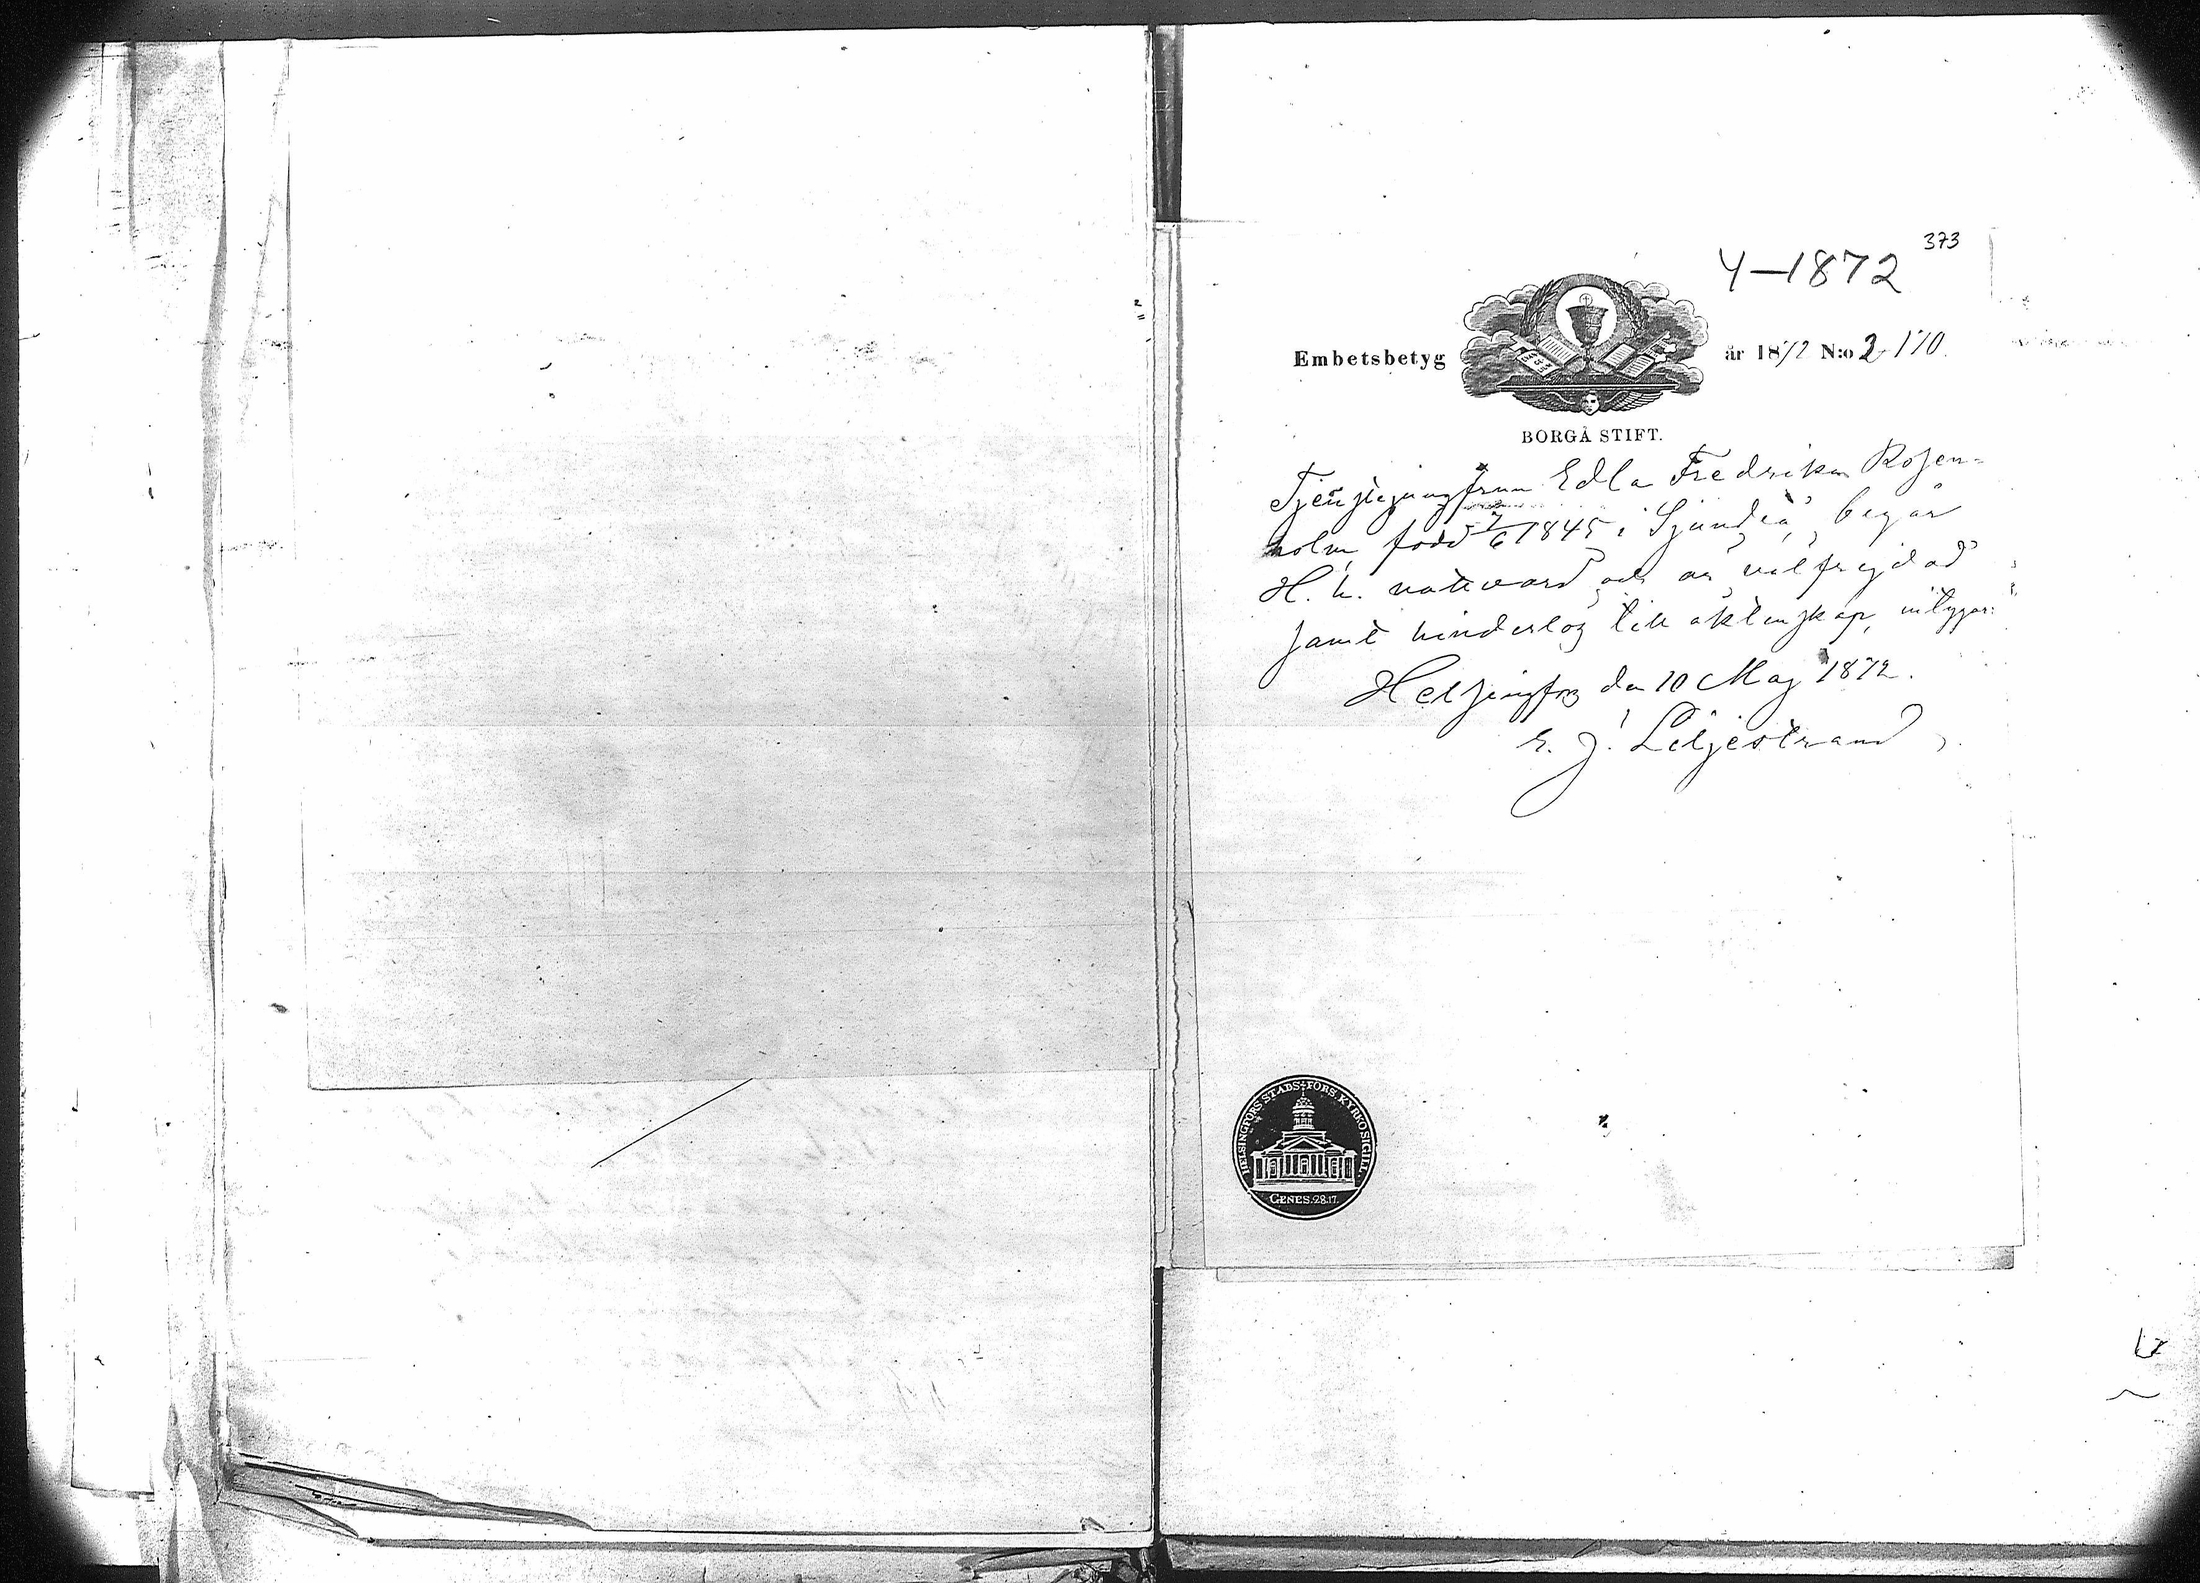 373
4-1872
Embetsbetyg år 1872 N:o 2170.
BORGÅ STIFT.
Tjenstejungfrun Edla Fredrika Rosen-
holm, född 7/6 1845 i Sjundeå, begår
H. h. nattvard och är välfrejdad
samt hinderlös till äktenskap, intygar:
Helsingfors den 10 Maj 1872.
E. J. Liljestrand
HELSINGFORS STADS FÖRS. KYRKOSIGILL.
GENES. 28.17.